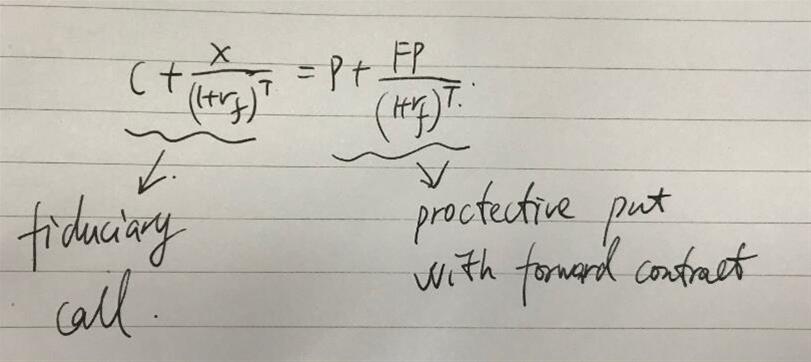 C + X/(1+rf)^T = P + FP/(1+rf)^T.
fiduciary
call.
proctective put
with forward contract